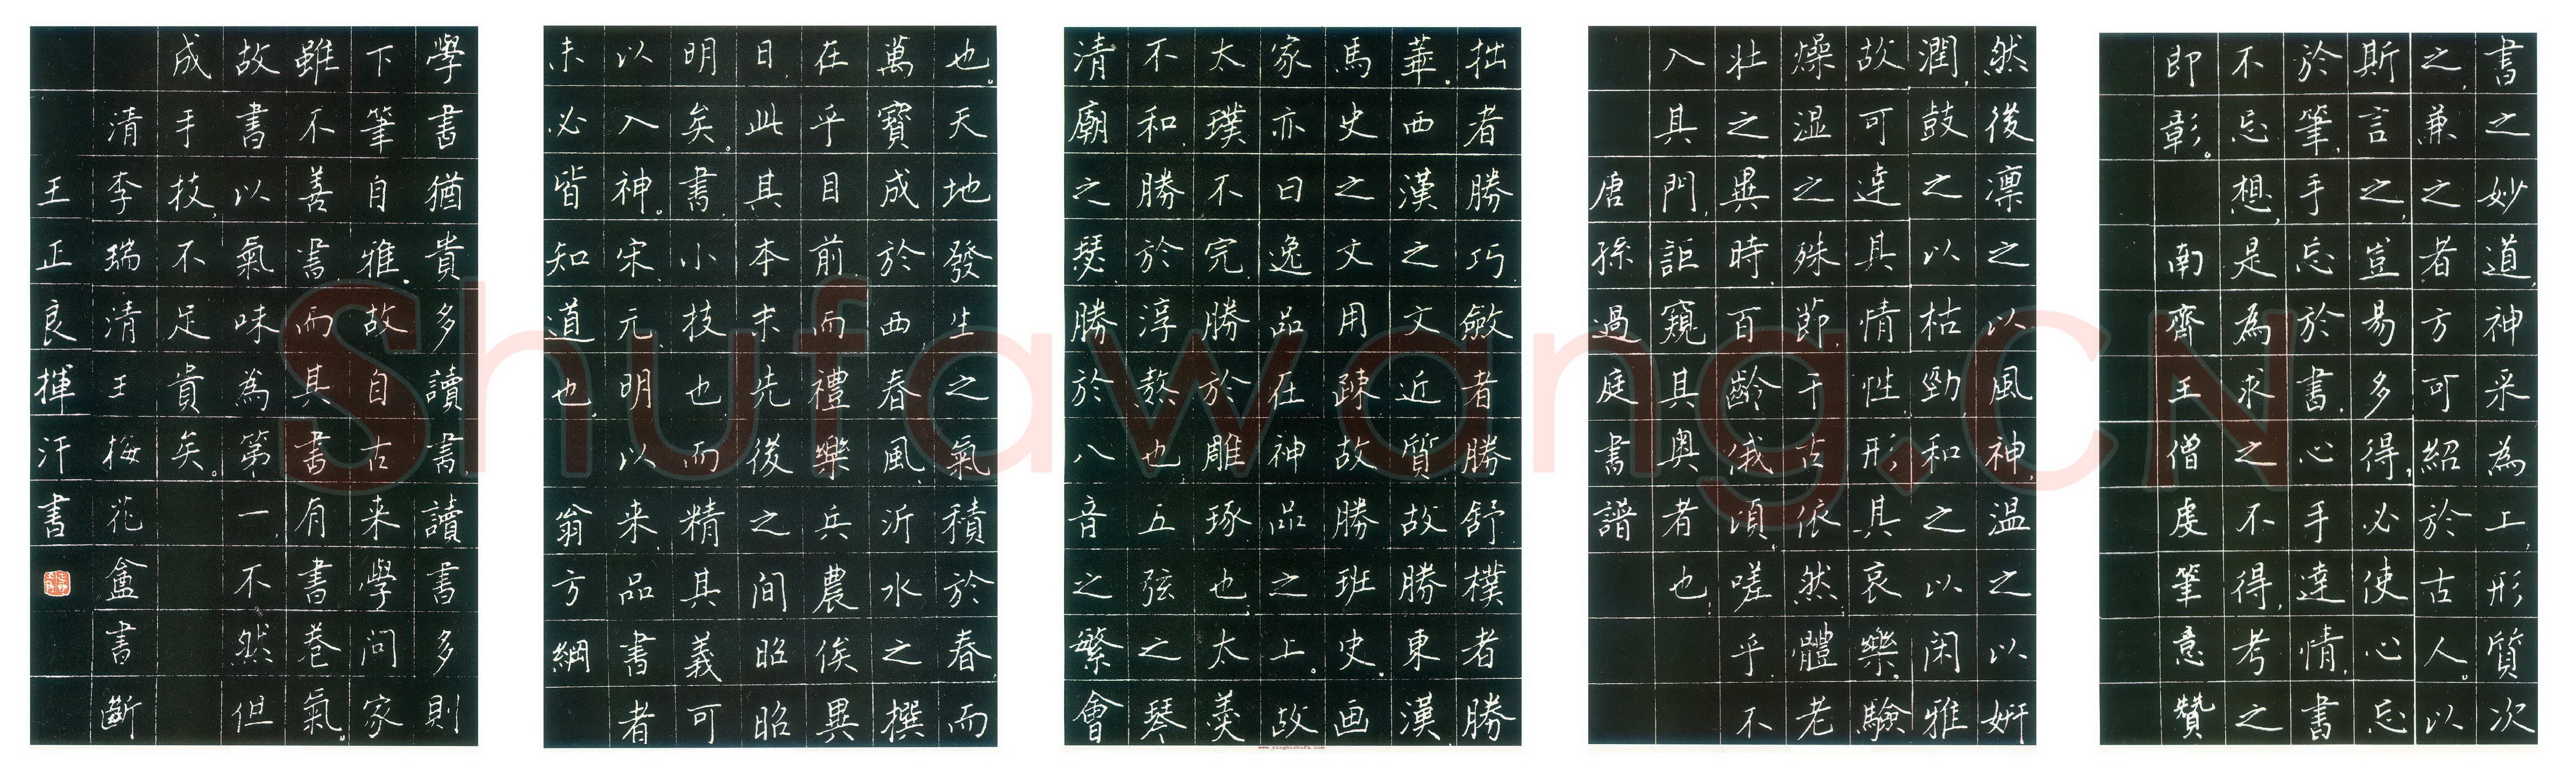 書之妙道,神采為上,形質次
之,兼之者方可紹於古人。以
斯言之,豈易多得,必使心忘
於筆,手忘於書,心手達情,書
不忘想,是為求之不得,考之
即彰。南齊王僧虔筆意贊
然後凛之以風神,温之以妍
潤,鼓之以枯勁,和之以闲雅
故可達其情性,形其哀樂。驗
燥湿之殊節,千古依然,體老
壯之異時,百齡俄頃,嗟乎,不
入其門,詎窺其奧者也!
唐孫過庭書譜
拙者勝巧,斂者勝舒,樸者勝
華。西漢之文近質,故勝東漢
馬史之文用疎,故勝班史。画
家亦曰逸品在神品之上。故
太璞不完,勝於雕琢也,太羹
不和,勝於淳熬也,五弦之琴
清廟之瑟,勝於八音之繁會
也。天地發生之氣積於春,而
萬寶成於西,春風沂水之撰
在乎目前,而禮樂兵農俟異
日,此其本末先後之間昭昭
明矣。書,小技也,而精其義可
以入神。宋,元,明以来,品書者
未必皆知道也,翁方綱
學書猶貴多讀書,讀書多則
下筆自雅。故自古来學問家
雖不善書,而其書有書卷氣。
故書以氣味為第一,不然但
成手技,不足貴矣。
清李瑞清王梅花盦書斷
王正良揮汗書
Shufawang.CN
www.yingbishufa.com